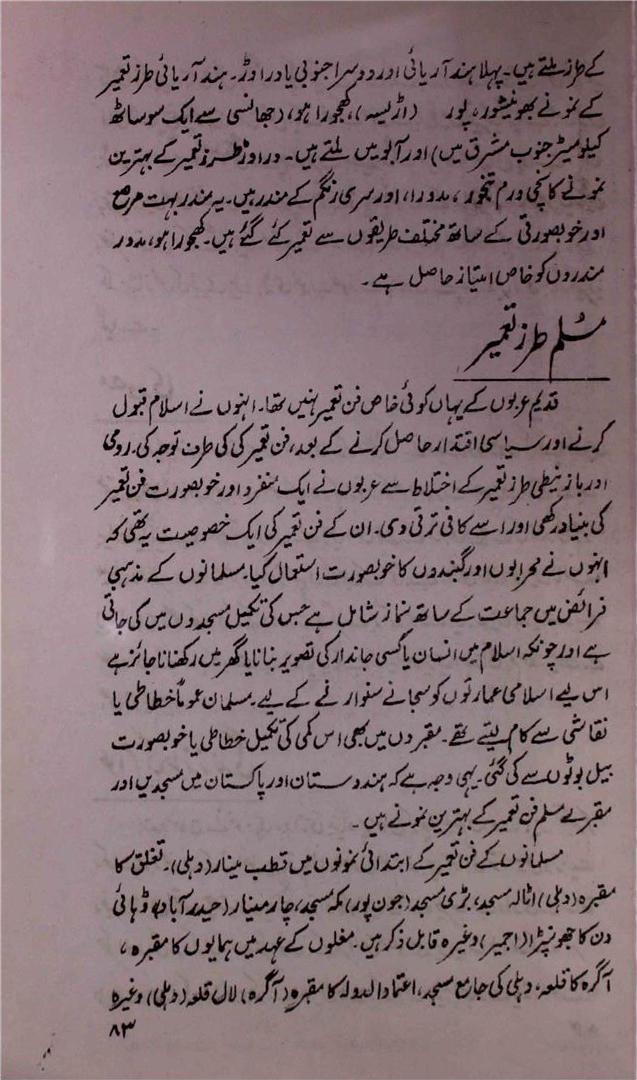 کے طرز ملتے ہیں۔ پہلا ہند آریائی اور دوسرا جنوبی یا دراوڑ۔ ہند آریائی طرز تعمیر
کے نمونے بھونیشور، پور (اڑلیسہ)، کھجوراہو، (جھانسی سے ایک سو ساٹھ
کیلومیٹر جنوب مشرق میں) اور آبو میں ملتے ہیں۔ دراوڑ طرز تعمیر کے بہترین
نمونے کانچی ورم تنجور، مدورا، اور سری رنگم کے مندر ہیں۔ یہ مندر بہت مرصع
اور خوبصورتی کے ساتھ مختلف طریقوں سے تعمیر کئے گئے ہیں۔ کھجوراہو، مدور
مندروں کو خاص امتیاز حاصل ہے۔
مُسلم طرز تعمیر
قدیم عربوں کے یہاں کوئی خاص فن تعمیر نہیں تھا۔ انہوں نے اسلام قبول
کرنے اور سیاسی اقتدار حاصل کرنے کے بعد، فن تعمیر کی کی طرف توجہ کی۔ رومی
اور بازنیطی طرز تعمیر کے اختلاط سے عربوں نے ایک منفرد اور خوبصورت فن تعمیر
کی بنیاد رکھی اور اسے کافی ترقی دی۔ ان کے فن تعمیر کی ایک خصوصیت یہ تھی کہ
انہوں نے محرابوں اور گنبدوں کا خوبصورت استعمال کیا۔ مسلمانوں کے مذہبی
فرائض میں جماعت کے ساتھ نماز شامل ہے جس کی تکمیل مسجدوں میں کی جاتی
ہے اور چونکہ اسلام میں انسان یا کسی جاندار کی تصویر بنانا یا گھر میں رکھنا ناجائز ہے
اس لیے اسلامی عمارتوں کو سجانے سنوارنے کے لیے۔ مسلمان عموماً خطاطی یا
نقاشی سے کام لیتے تھے۔ مقبروں میں بھی اس کمی کی تکمیل خطاطی یا خوبصورت
بیل بوٹوں سے کی گئی۔ یہی وجہ ہے کہ ہندوستان اور پاکستان میں مسجدیں اور
مقبرے مسلم فن تعمیر کے بہترین نمونے ہیں۔
مسلمانوں کے فن تعمیر کے ابتدائی نمونوں میں قطب مینار (دہلی)۔ تغلق کا
مقبرہ (دہلی) اٹالہ مسجد، بڑی مسجد (جون پور) مکہ مسجد، چار مینار (حیدرآباد) ڈھائی
دن کا جھونپڑا (اجمیر) وغیرہ قابل ذکر ہیں۔ مغلوں کے عہد میں ہمایوں کا مقبرہ،
آگرہ کا قلعہ، دہلی کی جامع مسجد، اعتماد الدولہ کا مقبرہ (آگرہ) لال قلعہ (دہلی) وغیرہ
۸۳